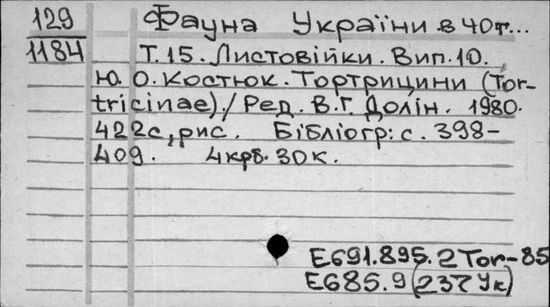 129
1184
Фауна України в 40т...
Т.15. Листовійки. Вип.10.
Ю. О. Костюк. Тортрицини (Tor-
tricinae)./Ред. В.Г. Долін. 1980.
422с, рис. Бібліогр: с. 398-
409. 4крб. 30к.
Е691.895.2Tor-85
Е685.9(237Ук)